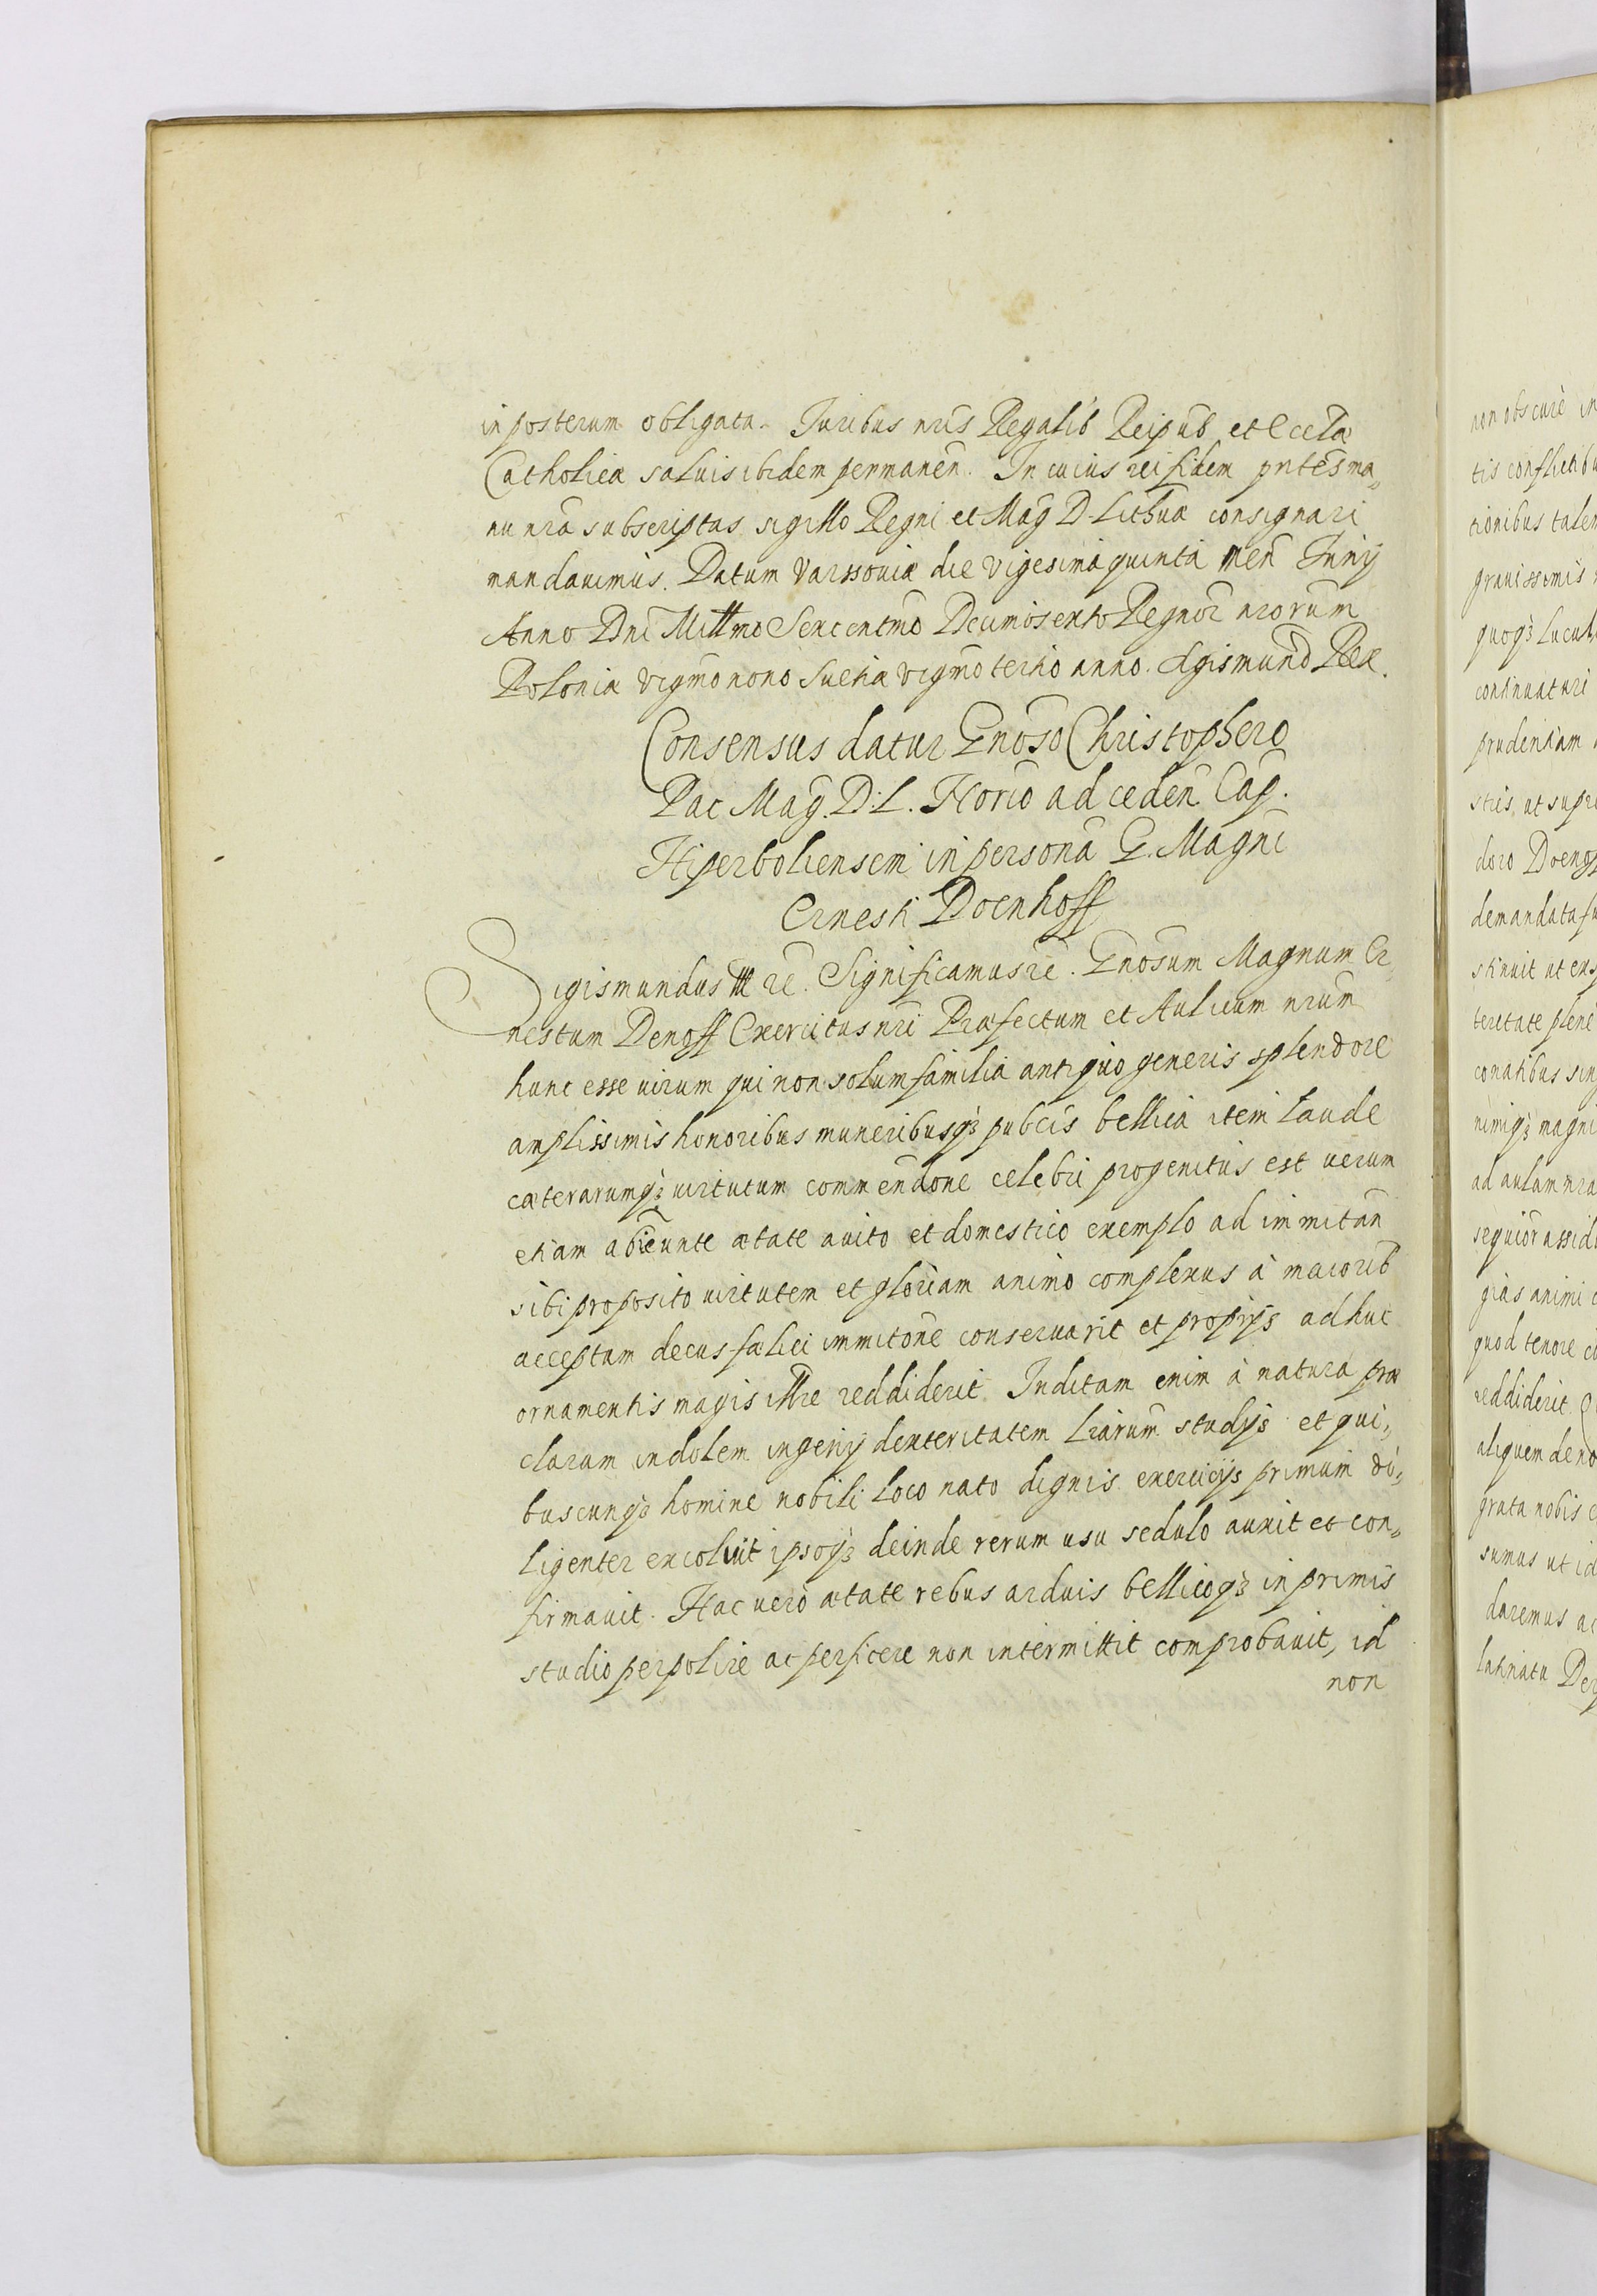 in posterum obligata. Iuribus nris Regalib Reipub et Eccłae
Catholicae saluis ibidem permanen. In cuius rei fidem pntes ma„
nu nra subscriptas sigillo Regni et Mag D. Lithuae consignari
mandauimus. Datum Varssouiae die vigesima quinta men Iunij
Anno Dni Millmo Sexcentmo Decimosexto Regnor nrorum
Poloniae vigmo nono Suetiae vigmo tertio anno. Sigismund Rex.
Consensus datur Gnoso Christophero
Pac Mag. D. L. Notrio ad ceden Cap.
Hiperboliensem in persona G. Magni
Ernesti Doenhoff
Sigismundus III re. Significamus re. Gnosum Magnum Er„
nestum Denoff Exercitus nri Praefectum et Aulicum nrum
hunc esse uirum qui non solum familia antiquo generis splendore
amplissimis honoribus muneribusq3 pubcis bellica item laude
caeterarumq3 uirtutum commendone celebri progenitus est uerum
etiam ab ieunte aetate auito et domestico exemplo ad immitan
sibi proposito uirtutem et gloriam animo complexus à maiorib
acceptam decus faelici immitone conseruarit et proprijs adhuc
ornamentis magis illre reddiderit. Inditam enim à natura prae
claram indolem ingenij dexteritatem lrarum studijs et qui„
buscunq3 homine nobili loco nato dignis exercicijs primum di„
ligenter excoluit ipsoq3 deinde rerum usu sedulo auxit et con„
firmauit. Hac uero aetate rebus arduis bellicoq3 in primis
studio perpolire ac perficere non intermittit comprobauit, id
non
non obscurè in
tis conflictibu
tionibus talem
grauissimis
quoq3 lucul
continuaturi
prudentiam
stris, ut supr
doro Doenof
demandata fu
stinuit ut ex
teritate plene
conatibus sin
nimiq3 magni
ad aulam nra
sequior assid
gias animi
quod tenore
reddiderit
aliquem de no
grata nobis
sumus ut id
daremus ac
latinatu Der